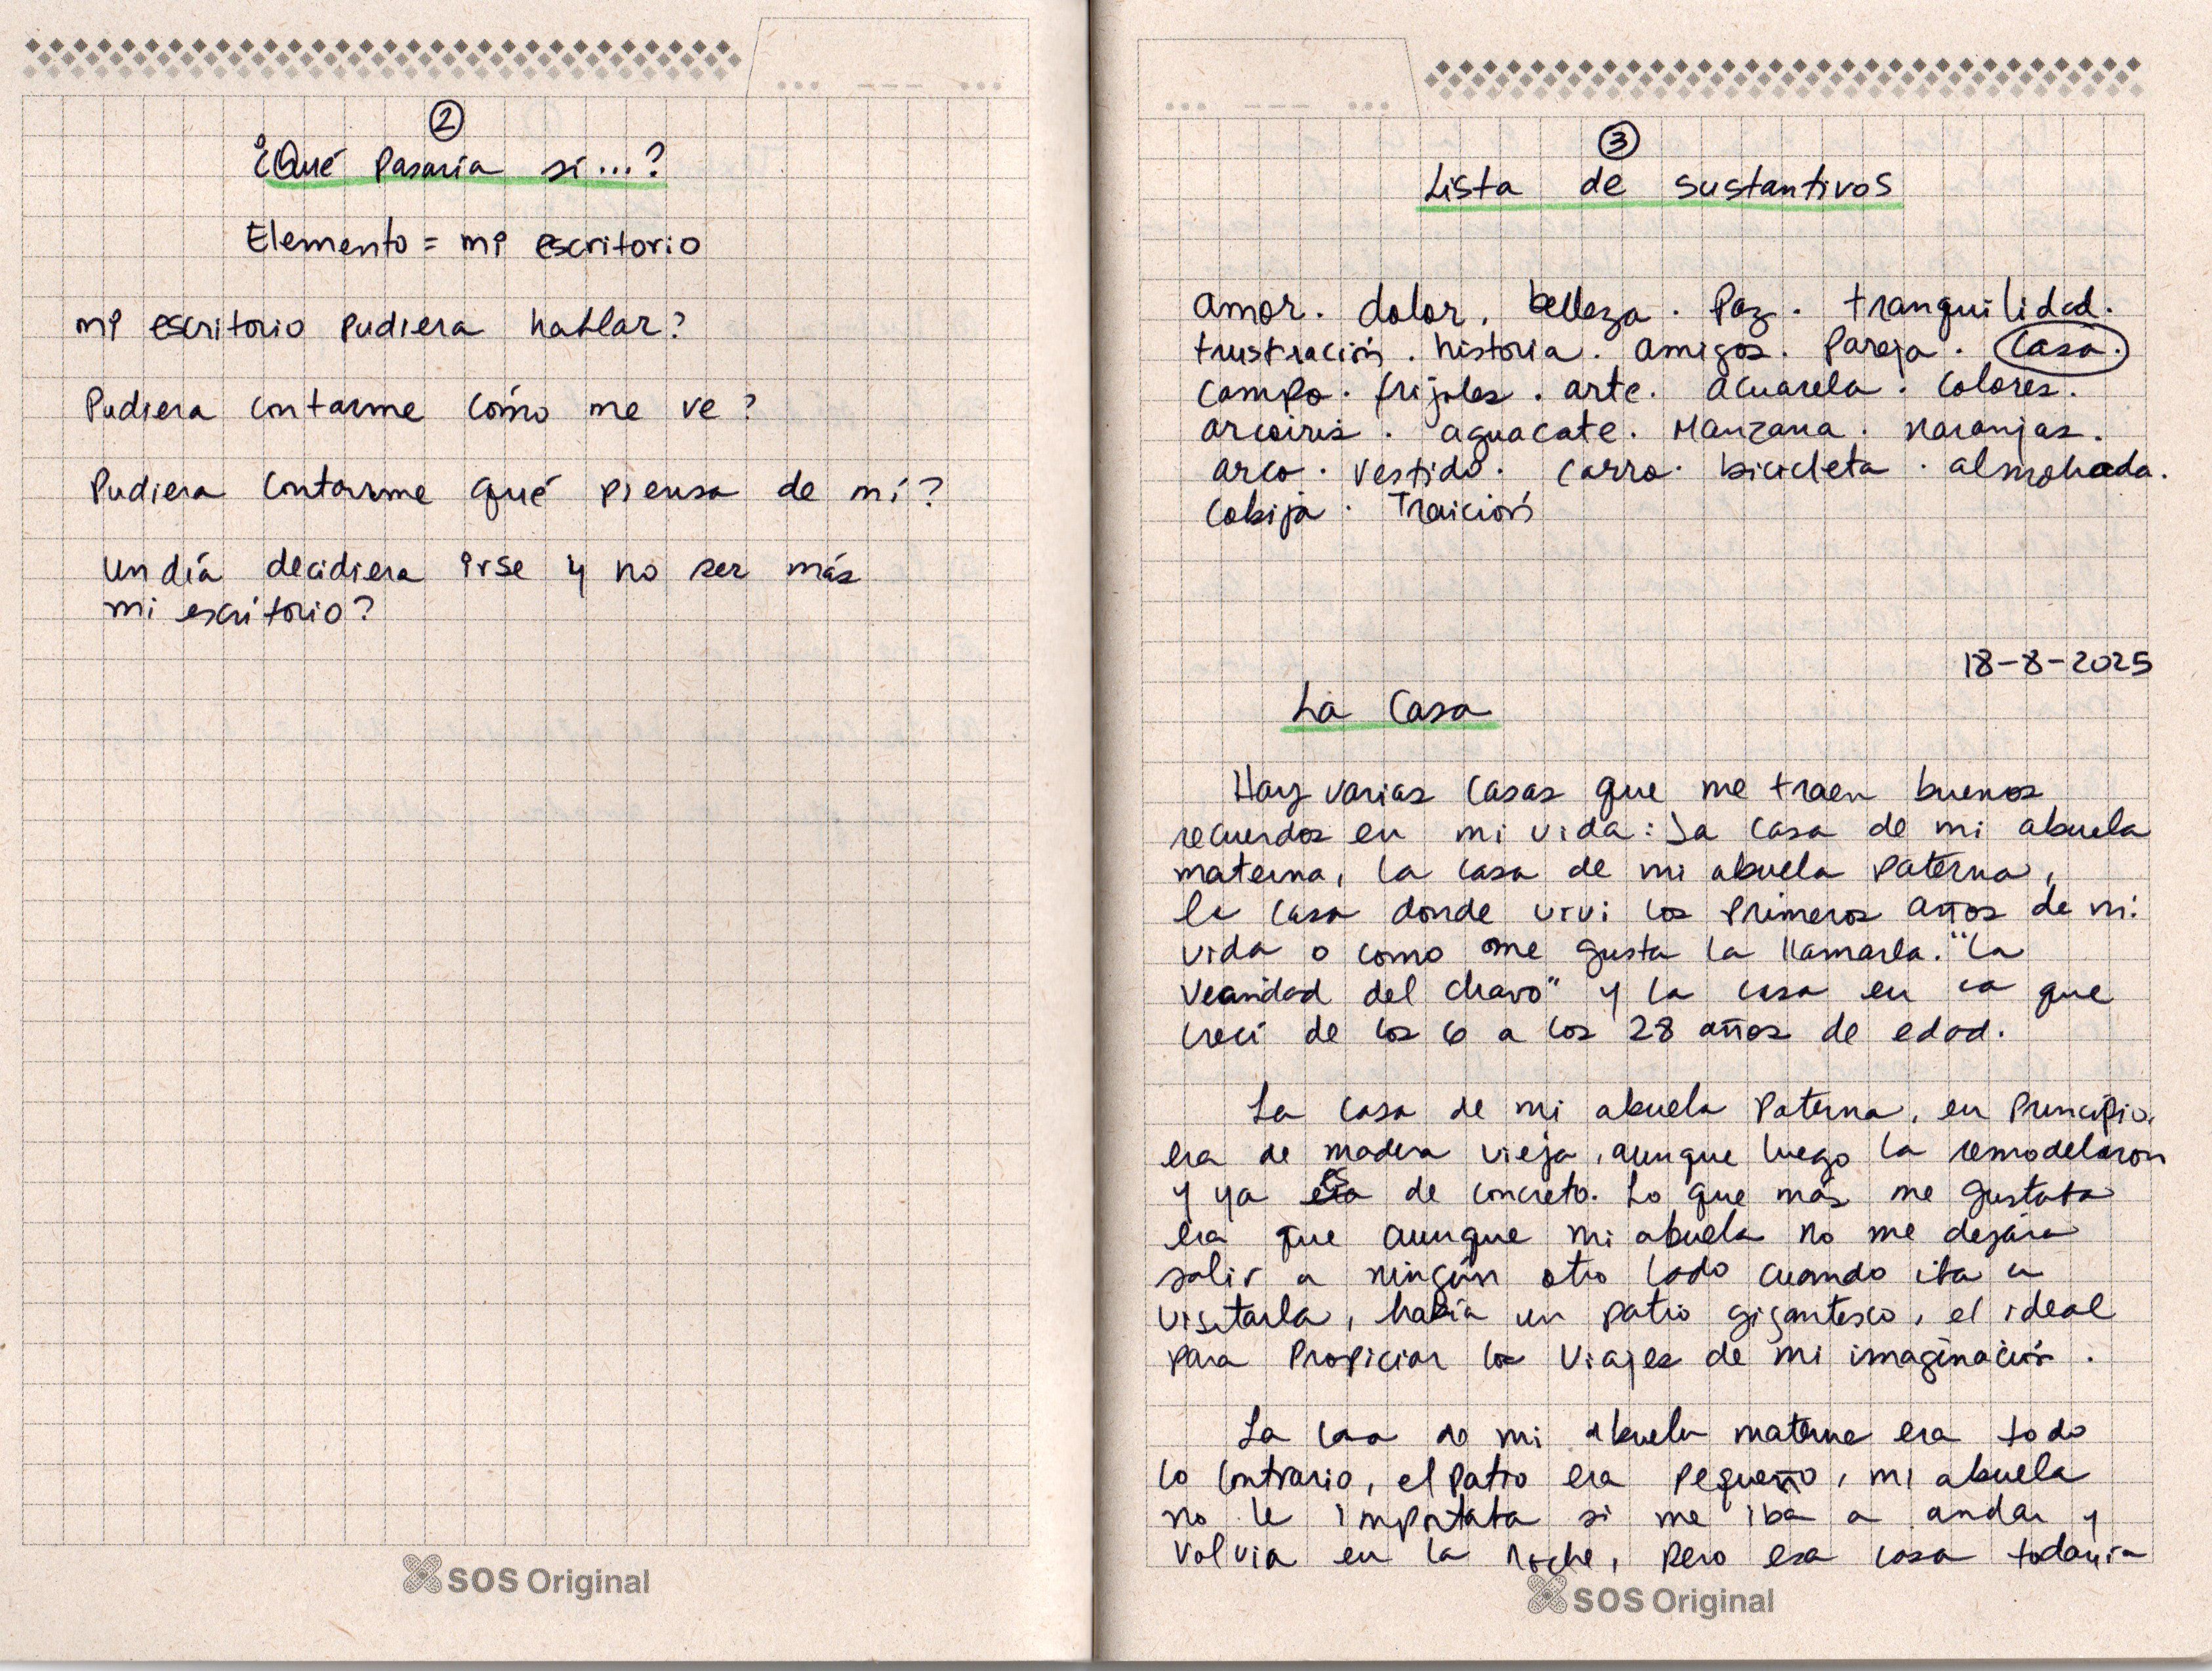 ②
¿Qué pasaría si...?
Elemento = mi escritorio
mi escritorio pudiera hablar?
Pudiera contarme cómo me ve?
Pudiera contarme qué piensa de mí?
Un día decidiera irse y no ser más
mi escritorio?
SOS Original
③
Lista de sustantivos
amor. dolor. belleza. Paz. tranquilidad.
frustración. historia. amigos. Pareja. Casa.
campo. frijoles. arte. acuarela. colores.
arcoiris. aguacate. Manzana. naranjas.
arco. vestido. carro. bicicleta. almohada.
Cobija. Traición
18-8-2025
La Casa
Hay varias casas que me traen buenos
recuerdos en mi vida: la casa de mi abuela
materna, la casa de mi abuela paterna,
la casa donde viví los primeros años de mi
vida o como me gusta la llamarla. "La
Vecindad del chavo" y la casa en la que
crecí de los 6 a los 28 años de edad.
La casa de mi abuela paterna, en principio,
era de madera vieja, aunque luego la remodelaron
y ya es de concreto. Lo que más me gustaba
era que aunque mi abuela no me dejara
salir a ningún otro lado cuando iba a
visitarla, había un patio gigantesco, el ideal
para propiciar los viajes de mi imaginación.
La casa de mi abuela materna era todo
lo contrario, el patio era pequeño, mi abuela
no le importaba si me iba a andar y
volvía en la noche, pero esa casa todavía
SOS Original